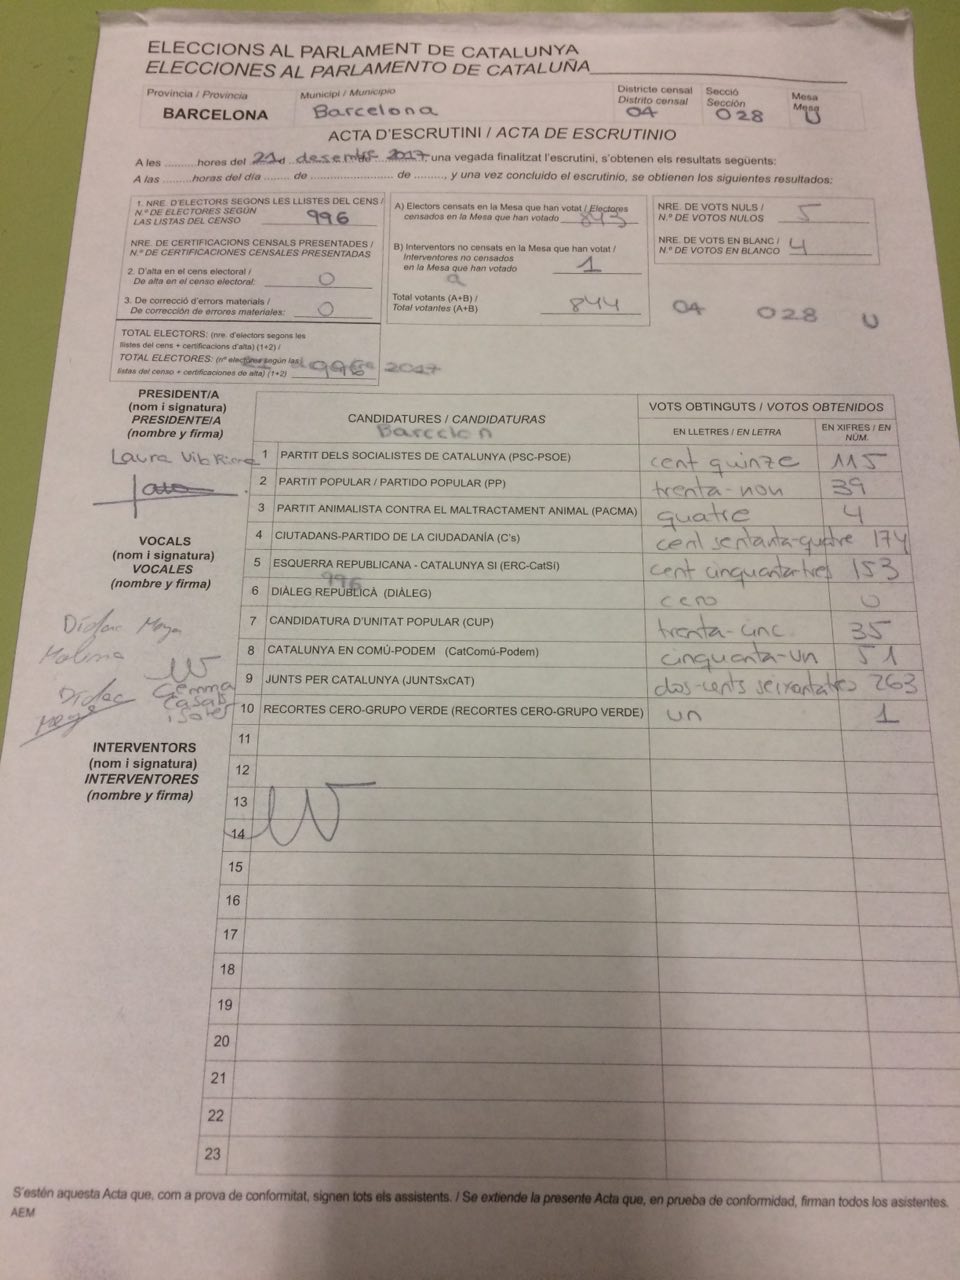 ELECCIONS AL PARLAMENT DE CATALUNYA
ELECCIONES AL PARLAMENTO DE CATALUÑA
Provincia / Provincia
BARCELONA
Municipi / Municipio
Barcelona
Districte censal
Distrito censal
04
Secció
Sección
028
Mesa
Mesa
U
ACTA D'ESCRUTINI / ACTA DE ESCRUTINIO
A les .......... hores del 21 d desembre 2017, una vegada finalitzat l'escrutini, s'obtenen els resultats següents:
A las .......... horas del día ....... de ...................... de ........, y una vez concluido el escrutinio, se obtienen los siguientes resultados:
1. NRE. D'ELECTORS SEGONS LES LLISTES DEL CENS /
N.º DE ELECTORES SEGÚN
LAS LISTAS DEL CENSO 996
NRE. DE CERTIFICACIONS CENSALS PRESENTADES /
N.º DE CERTIFICACIONES CENSALES PRESENTADAS
2. D'alta en el cens electoral /
De alta en el censo electoral: 0
3. De correcció d'errors materials /
De corrección de errores materiales: 0
TOTAL ELECTORS: (nre. d'electors segons les
llistes del cens + certificacions d'alta) (1+2) /
TOTAL ELECTORES: (nº electores según las
listas del censo + certificaciones de alta) (1+2) 996 2017
A) Electors censats en la Mesa que han votat / Electores
censados en la Mesa que han votado 843
B) Interventors no censats en la Mesa que han votat /
Interventores no censados
en la Mesa que han votado 1
Total votants (A+B) /
Total votantes (A+B) 844
NRE. DE VOTS NULS /
N.º DE VOTOS NULOS 5
NRE. DE VOTS EN BLANC /
N.º DE VOTOS EN BLANCO 4
04 028 U
PRESIDENT/A
(nom i signatura)
PRESIDENTE/A
(nombre y firma)
Laura
VOCALS
(nom i signatura)
VOCALES
(nombre y firma)
Dídac Moya
Molina
Dídac
Gemma
Casals
i Soler
INTERVENTORS
(nom i signatura)
INTERVENTORES
(nombre y firma)
CANDIDATURES / CANDIDATURAS
Barcelon
VOTS OBTINGUTS / VOTOS OBTENIDOS
EN LLETRES / EN LETRA
EN XIFRES / EN NÚM.
1 PARTIT DELS SOCIALISTES DE CATALUNYA (PSC-PSOE) cent quinze 115
2 PARTIT POPULAR / PARTIDO POPULAR (PP) trenta-nou 39
3 PARTIT ANIMALISTA CONTRA EL MALTRACTAMENT ANIMAL (PACMA) quatre 4
4 CIUTADANS-PARTIDO DE LA CIUDADANÍA (C's) cent sentanta-quatre 174
5 ESQUERRA REPUBLICANA - CATALUNYA SI (ERC-CatSí) cent cinquanta-tres 153
996
6 DIÀLEG REPUBLICÀ (DIÀLEG) cero 0
7 CANDIDATURA D'UNITAT POPULAR (CUP) trenta-cinc 35
8 CATALUNYA EN COMÚ-PODEM (CatComú-Podem) cinquanta-un 51
9 JUNTS PER CATALUNYA (JUNTSxCAT) dos-cents seixantatres 263
10 RECORTES CERO-GRUPO VERDE (RECORTES CERO-GRUPO VERDE) un 1
11
12
13
14
15
16
17
18
19
20
21
22
23
S'estén aquesta Acta que, com a prova de conformitat, signen tots els assistents. / Se extiende la presente Acta que, en prueba de conformidad, firman todos los asistentes.
AEM